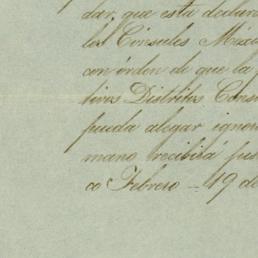 dar, que esta declara
los Cónsules Mexic
con órden de que la p
tivos Distritos Consu
pueda alegar ignora
mano recibirá jus
co Febrero - 19 de